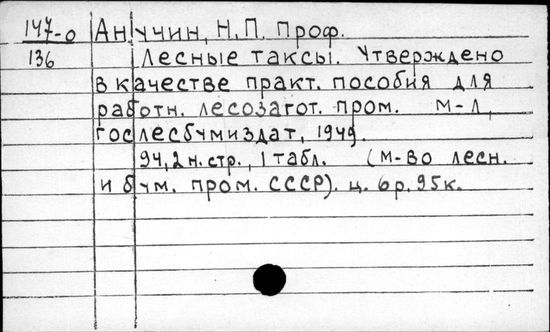 147-о Анучин, Н.П. Проф.
136 Лесные таксы. Утверждено
в качестве практ. пособия для
работн. лесозагот. пром. М-Л,
гослесбумиздат, 1949.
94,2 н. стр., 1 табл. (М-во лесн.
и бум. пром. СССР). ц. 6р. 95к.